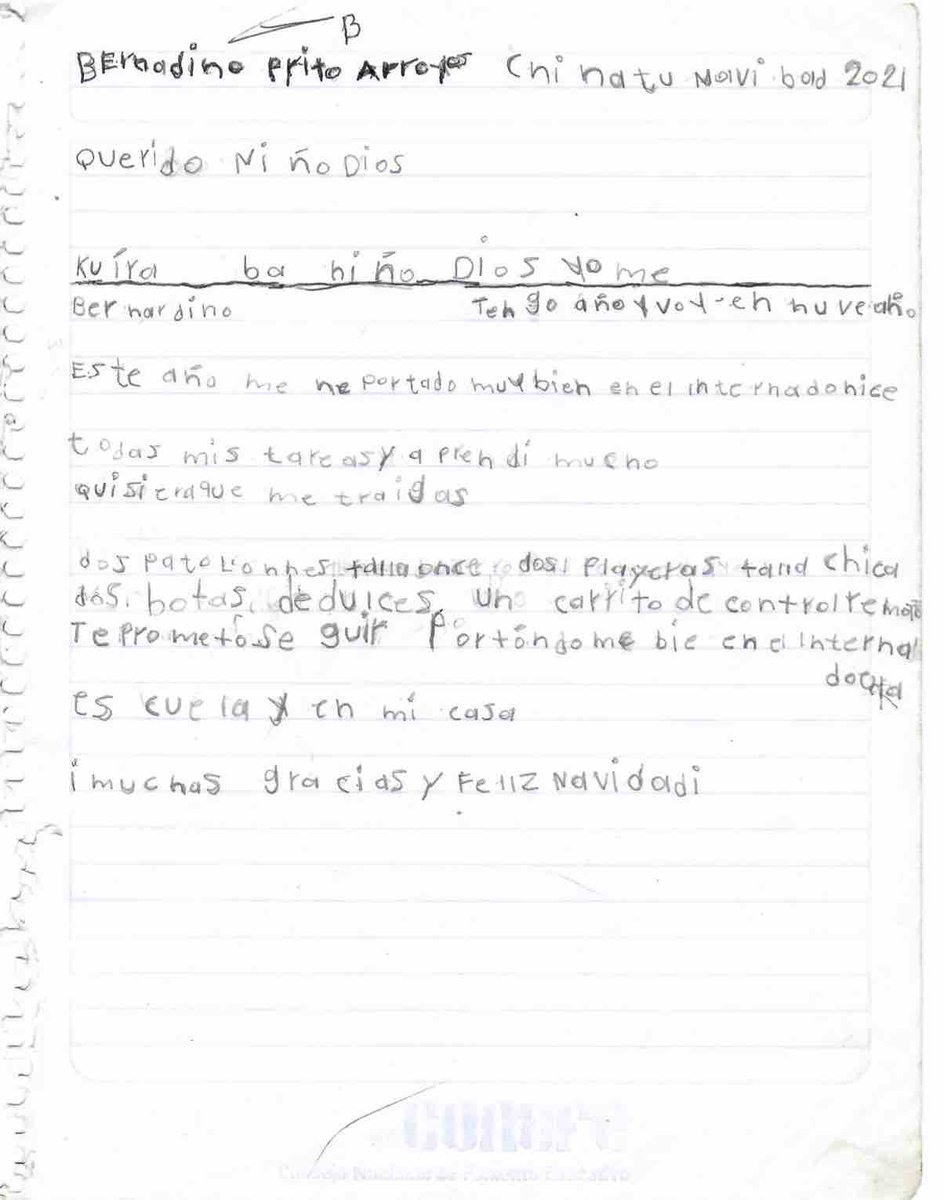 B
BErnadino Prito Arroyos Chinatu Navi bad 2021
Querido Ni ño Dios
Kuíra ba niño Dios yo me
Bernardino Tengo año y voy-en nuve año
Este año me he portado muy bien en el internado hice
todas mis tareas y aprendi mucho
quisiera que me traigas
dos patolonnes talla once dos playeras talla chica
dos botas de dulces un carrito de control remoto
Te prometo se guir Portándome bie en el interna
do
es cuela y en mi casa
¡muchas gracias y Feliz Navidad¡